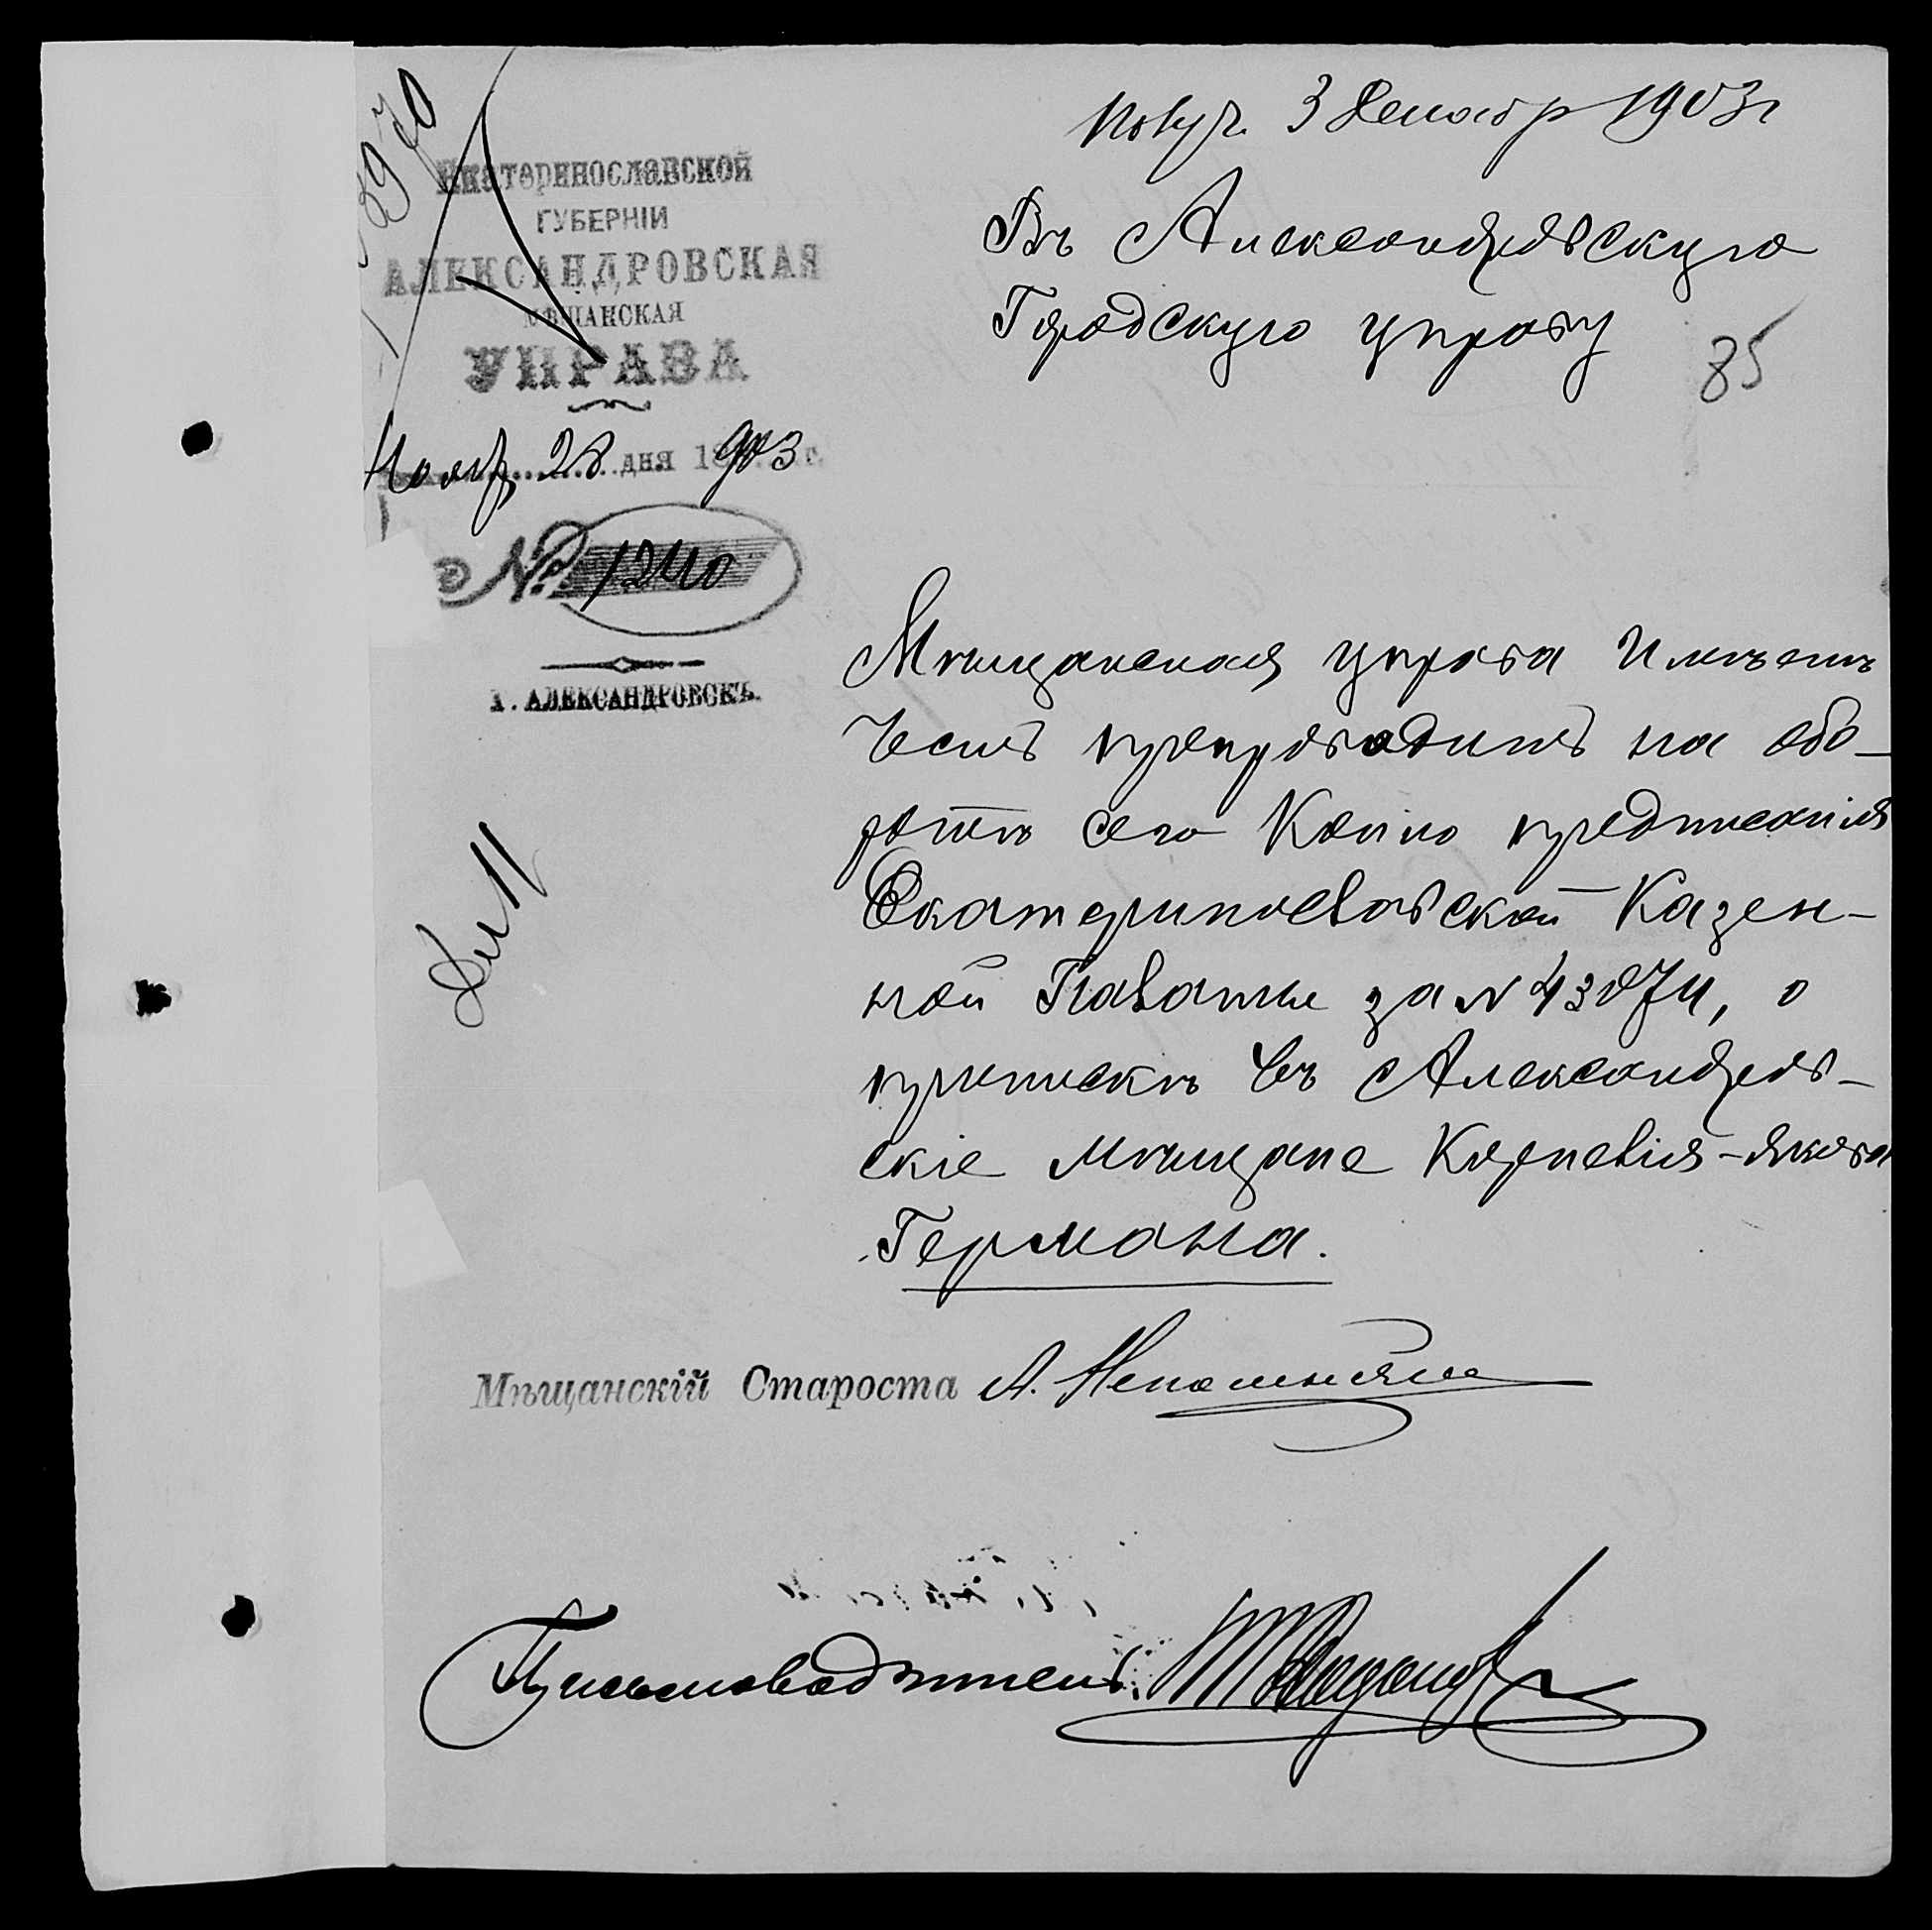 Получ. 3 Декабр 1903 г
Екатеринославской
ГУБЕРНІИ
АЛЕКСАНДРОВСКАЯ
МѢЩАНСКАЯ
УПРАВА
Нояб 28 дня 1903 г.
№ 1240
Г. АЛЕКСАНДРОВСКЪ.
Въ Александровскую
Городскую управу
85
Мѣщанская управа имѣетъ
честь препроводить на обо-
ротѣ сего копію предписанія
Екатеринославской Казен-
ной Палаты за № 43074, о
припискѣ въ Александров-
скіе мѣщане Корнелія-Якова
Германа.
Мѣщанскій Староста А. Непомнящи
Письмоводитель